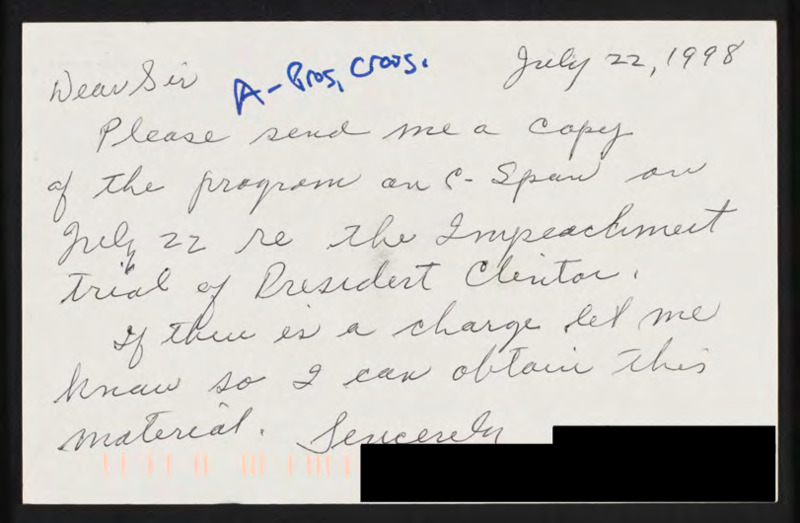 July 22, 1998
Dear Sir
Please send me a copy
of the program on C-Span on
July 22 re the Impeachment
trial of President Clinton.
If there is a charge let me
know so I can obtain this
material. Sincerely